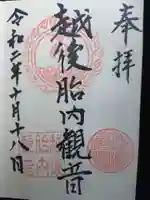 奉拝
越後胎内観音
令和二年十月十八日